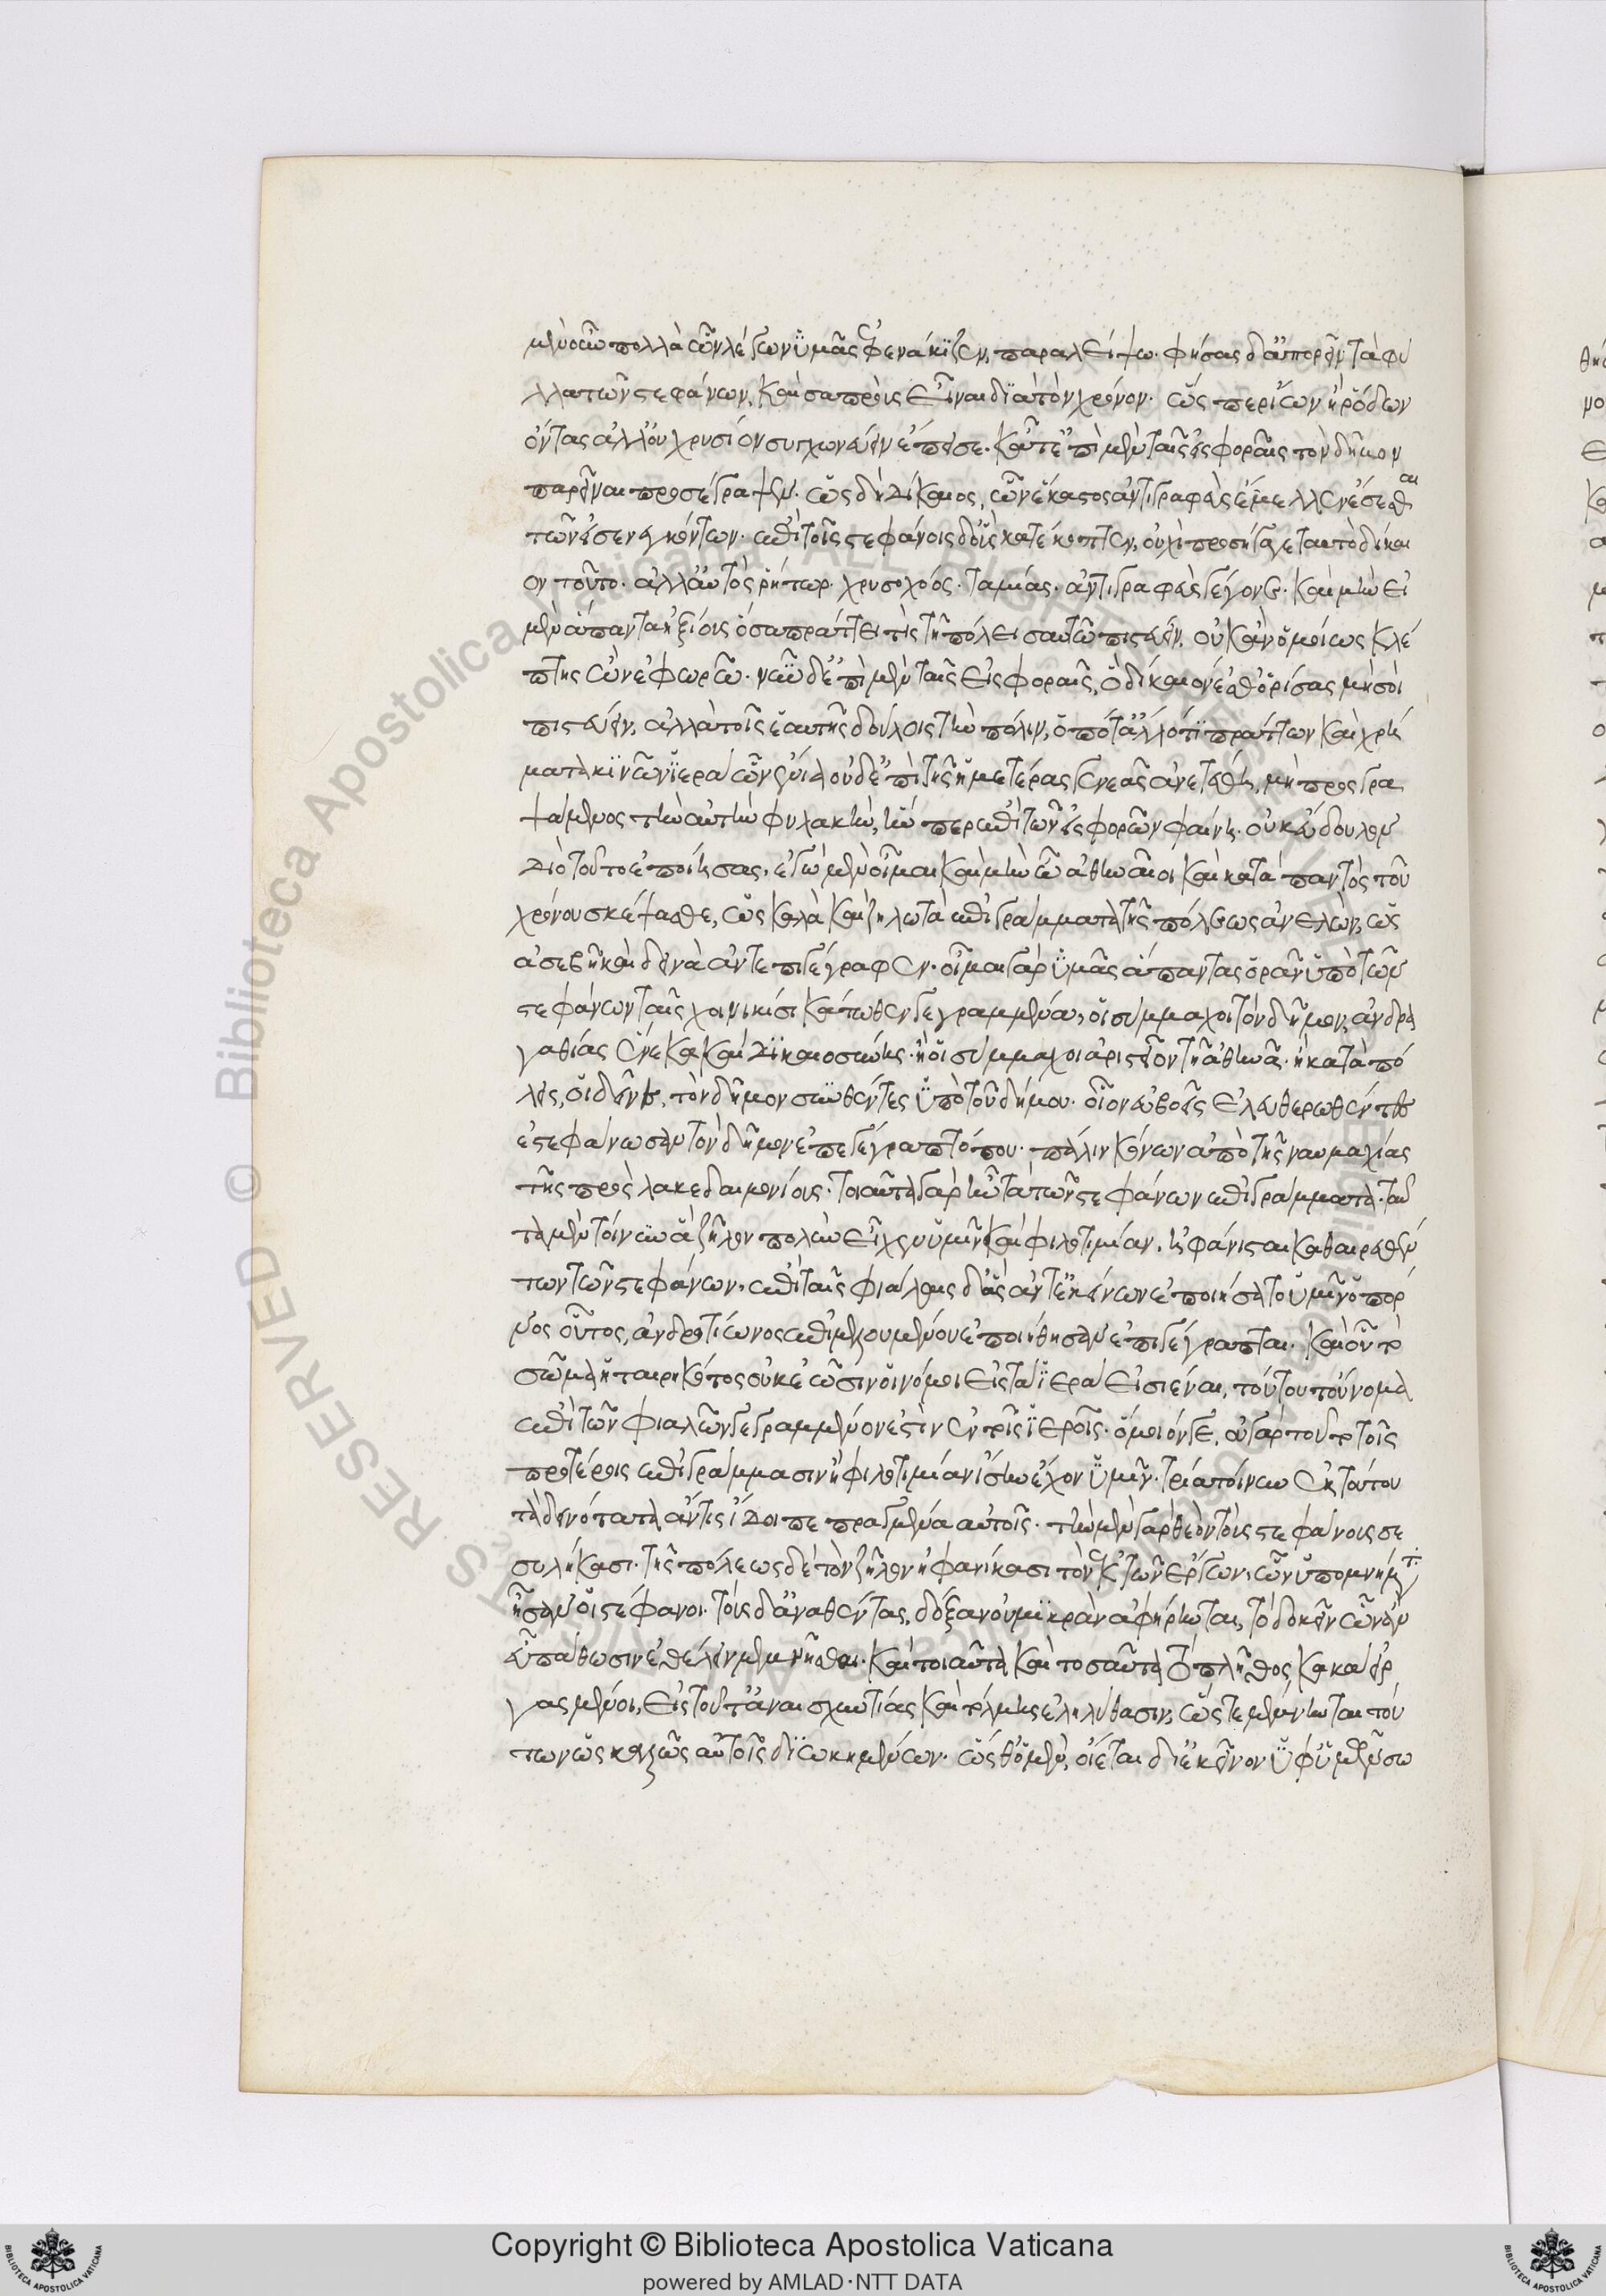 μὲν οὖν πολλὰ ὧν λέγων ὑμᾶς ἐφενάκιζεν, παραλείψω. φήσας δ' ἀπορρεῖν τὰ φύ
λλα τῶν στεφάνων, καὶ σαπροὺς εἶναι διὰ τὸν χρόνον. ὥσπερ ἴων ἢ ῥόδων
ὄντας ἀλλ' οὐ χρυσίου συγχωνεύειν ἔπεισε. κᾆτ' ἐπὶ μὲν ταῖς εἰσφοραῖς τὸν δῆμον
παρεῖναι προσέγραψεν. ὡς δὴ δίκαιος, ὧν ἕκαστος ἀντιγραφεὺς ἔμελλεν ἔσεσθαι
τῶν εἰσενεγκόντων. ἐπὶ τοῖς στεφάνοις δ' οἷς κατέκοπτεν, οὐχὶ προσήγαγε ταυτὸ δίκαι
ον τοῦτο. ἀλλ' αὐτὸς ῥήτωρ. χρυσοχόος. ταμίας. ἀντιγραφεὺς γέγονε. καὶ μὴν εἰ
μὲν ἅπαντα ἠξίους ὅσα πράττει τις τῇ πόλει σαυτῷ πιστεύειν, οὐκ ἂν ὁμοίως κλέ
πτης ὢν ἐφωρῶ. νῦν δὲ ἐπὶ μὲν ταῖς εἰσφοραῖς, ὃ δίκαιόν ἐσθ' ὁρίσας μὴ σοὶ
πιστεύειν, ἀλλὰ τοῖς ἑαυτῆς δούλοις τὴν πόλιν, ὁπότ' ἄλλό τι πράττων καὶ χρή
ματα κινῶν ἱερὰ ὧν ἔνια οὐδ' ἐπὶ τῆς ἡμετέρας γενεᾶς ἀνετέθη, μὴ προσγρα
ψάμενος τὴν αὐτὴν φυλακὴν, ἥνπερ ἐπὶ τῶν εἰσφορῶν φαίνῃ. οὐκ εὔδηλον
διὸ τοῦτο ἐποίησας. ἐγὼ μὲν οἶμαι καὶ μὴν ὦ ἀθηναῖοι καὶ κατὰ παντὸς τοῦ
χρόνου σκέψασθε, ὡς καλὰ καὶ ζηλωτὰ ἐπιγράμματα τῆς πόλεως ἀνελὼν, ὡς
ἀσεβῆ καὶ δεινὰ ἀντεπιγέγραφεν. οἶμαι γὰρ ὑμᾶς ἅπαντας ὁρᾶν ὑπὸ τῶν
στεφάνων ταῖς χοινικίσι κάτωθεν γεγραμμένα, οἱ σύμμαχοι τὸν δῆμον, ἀνδρα
γαθίας ἕνεκα καὶ δικαιοσύνης. ἢ οἱ σύμμαχοι ἀριστεῖον τῇ ἀθηνᾷ. ἢ κατὰ πό
λεις, οἱ δεῖνες, τὸν δῆμον σωθέντες ὑπὸ τοῦ δήμου. οἷον εὐβοεῖς ἐλευθερωθέντες
ἐστεφάνωσαν τὸν δῆμον ἐπεγέγραπτό που. πάλιν κόνων ἀπὸ τῆς ναυμαχίας
τῆς πρὸς λακεδαιμονίους. τοιαῦτα γὰρ ἦν τὰ τῶν στεφάνων ἐπιγράμματα. ταῦ
τα μὲν τοίνυν ἃ ζῆλον πολὺν εἶχεν ὑμῖν καὶ φιλοτιμίαν, ἠφάνισται καθαιρεθέν
των τῶν στεφάνων. ἐπὶ ταῖς φιάλαις δ' ἃς ἀντ' ἐκείνων ἐποιήσατο ὑμῖν ὁ πόρ
νος οὗτος, ἀνδροτίωνος ἐπιμελουμένου ἐποιήθησαν ἐπιγέγραπται. καὶ οὗ τὸ
σῶμα ἡταιρηκότος οὐκ ἐῶσιν οἱ νόμοι εἰς τὰ ἱερὰ εἰσιέναι, τούτου τοὔνομα
ἐπὶ τῶν φιαλῶν γεγραμμένον ἐστὶν ἐν τοῖς ἱεροῖς. ὅμοιόν γε, οὐ γὰρ τοῦτο τοῖς
προτέροις ἐπιγράμμασιν ἢ φιλοτιμίαν ἴσην ἔχον ὑμῖν. τρία τοίνυν ἐκ τούτου
τὰ δεινότατα ἄν τις ἴδοι πεπραγμένα αὐτοῖς. τὴν μὲν γὰρ θεὸν τοὺς στεφάνους σε
συλήκασι. τῆς πόλεως δὲ τὸν ζῆλον ἠφανίκασι τὸν ἐκ τῶν ἔργων, ὧν ὑπόμνημα
ἦσαν οἱ στέφανοι. τοὺς δ' ἀναθέντας, δόξαν οὐ μικρὰν ἀφῄρηνται, τὸ δοκεῖν ὧν ἂν
εὖ πάθωσιν ἐθέλειν μεμνῆσθαι. καὶ τοιαῦτα καὶ τοσαῦτα τὸ πλῆθος κακὰ εἰρ
γασμένοι, εἰς τοῦτ' ἀναισχυντίας καὶ τόλμης ἐληλύθασιν, ὥστε μέμνηνται τού
των ὡς καλῶς αὐτοῖς διῳκημένων. ὥσθ' ὁ μὲν, οἴεται δι' ἐκεῖνον ὑφ' ὑμῶν σω